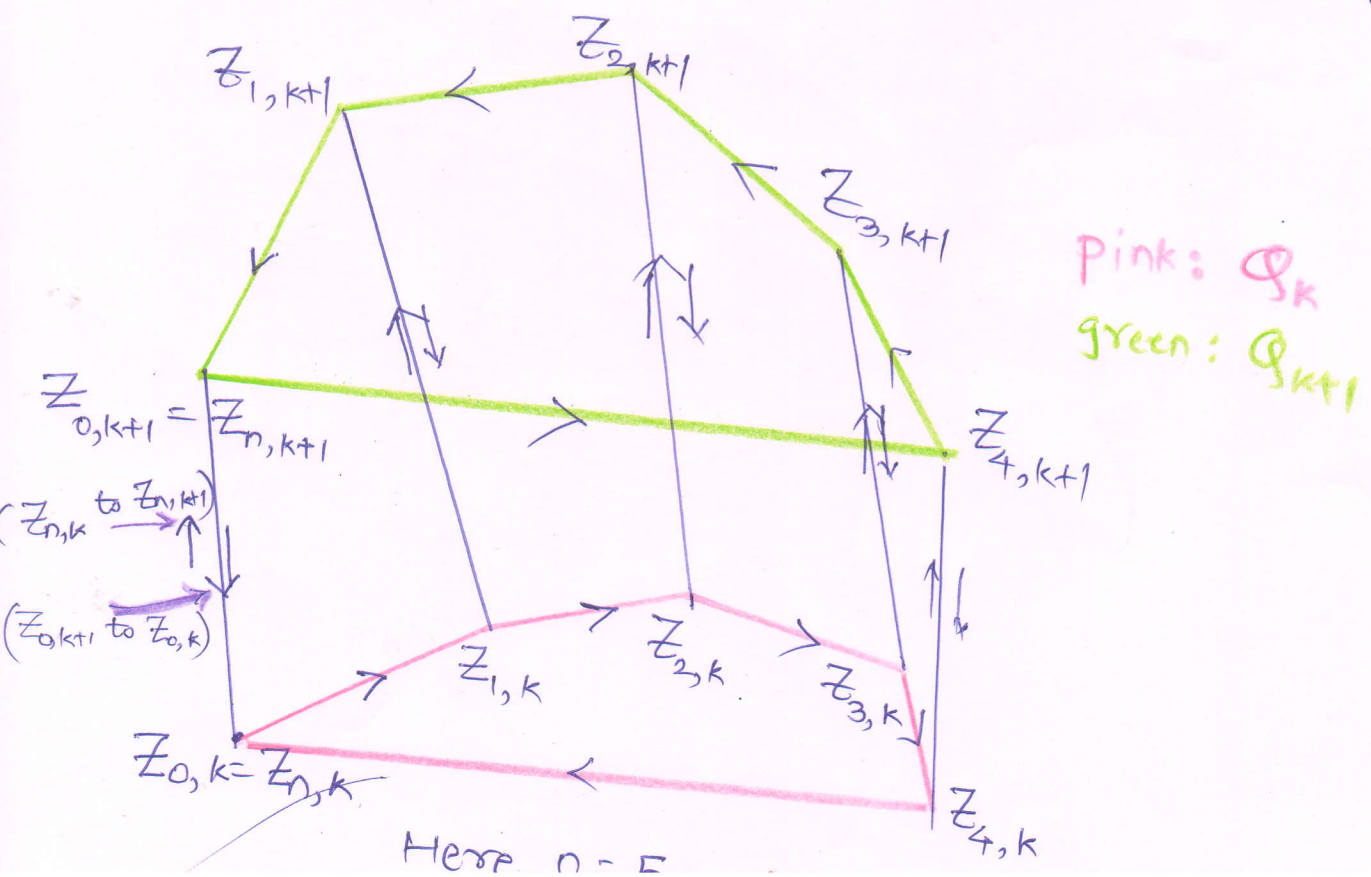 Z₂,k+1
Z₁,k+1
Z₃,k+1
pink: Qₖ
green: Qₖ₊₁
Z₀,k+1 = Zₙ,k+1
Z₄,k+1
(Zₙ,k to Zₙ,k+1)
(Z₀,k+1 to Z₀,k)
Z₁,k
Z₂,k
Z₃,k
Z₀,k = Zₙ,k
Z₄,k
Here n = 5